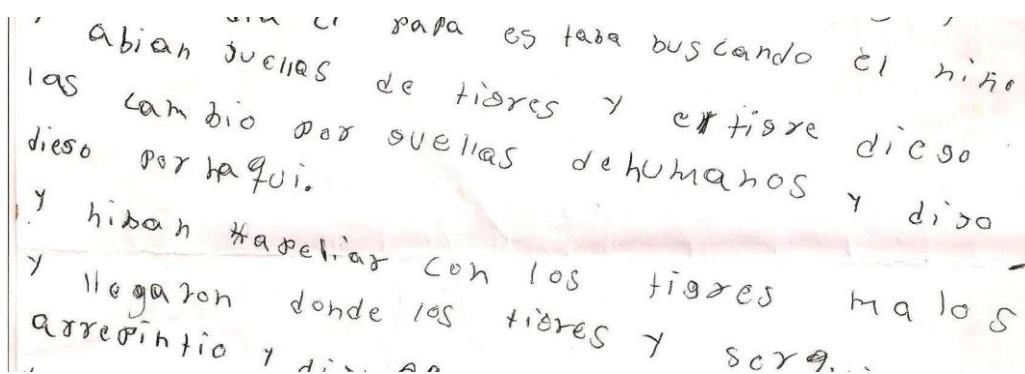 papa es taba buscando el niño
abian guellas de tigres y el tigre diego
las cambio por guellas dehumanos y dijo
diego por haqui.
y hiban hapeliar con los tigres malos
y llegaron donde los tigres y
arrepintio y